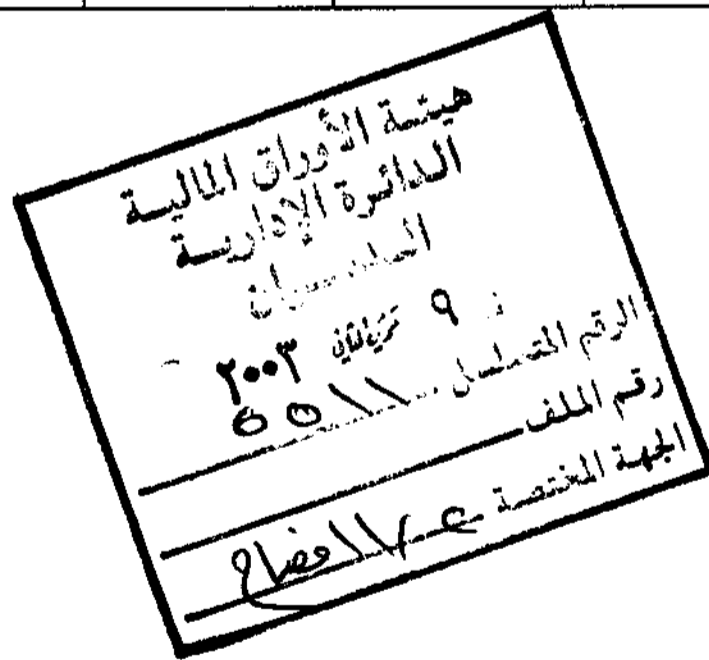 هيئة الأوراق المالية
الدائرة الإدارية
الديوان
٩ تشرين الثاني ٢٠٠٣
الرقم المتسلسل ٥٥١١
رقم الملف
الجهة المختصة الافصاح